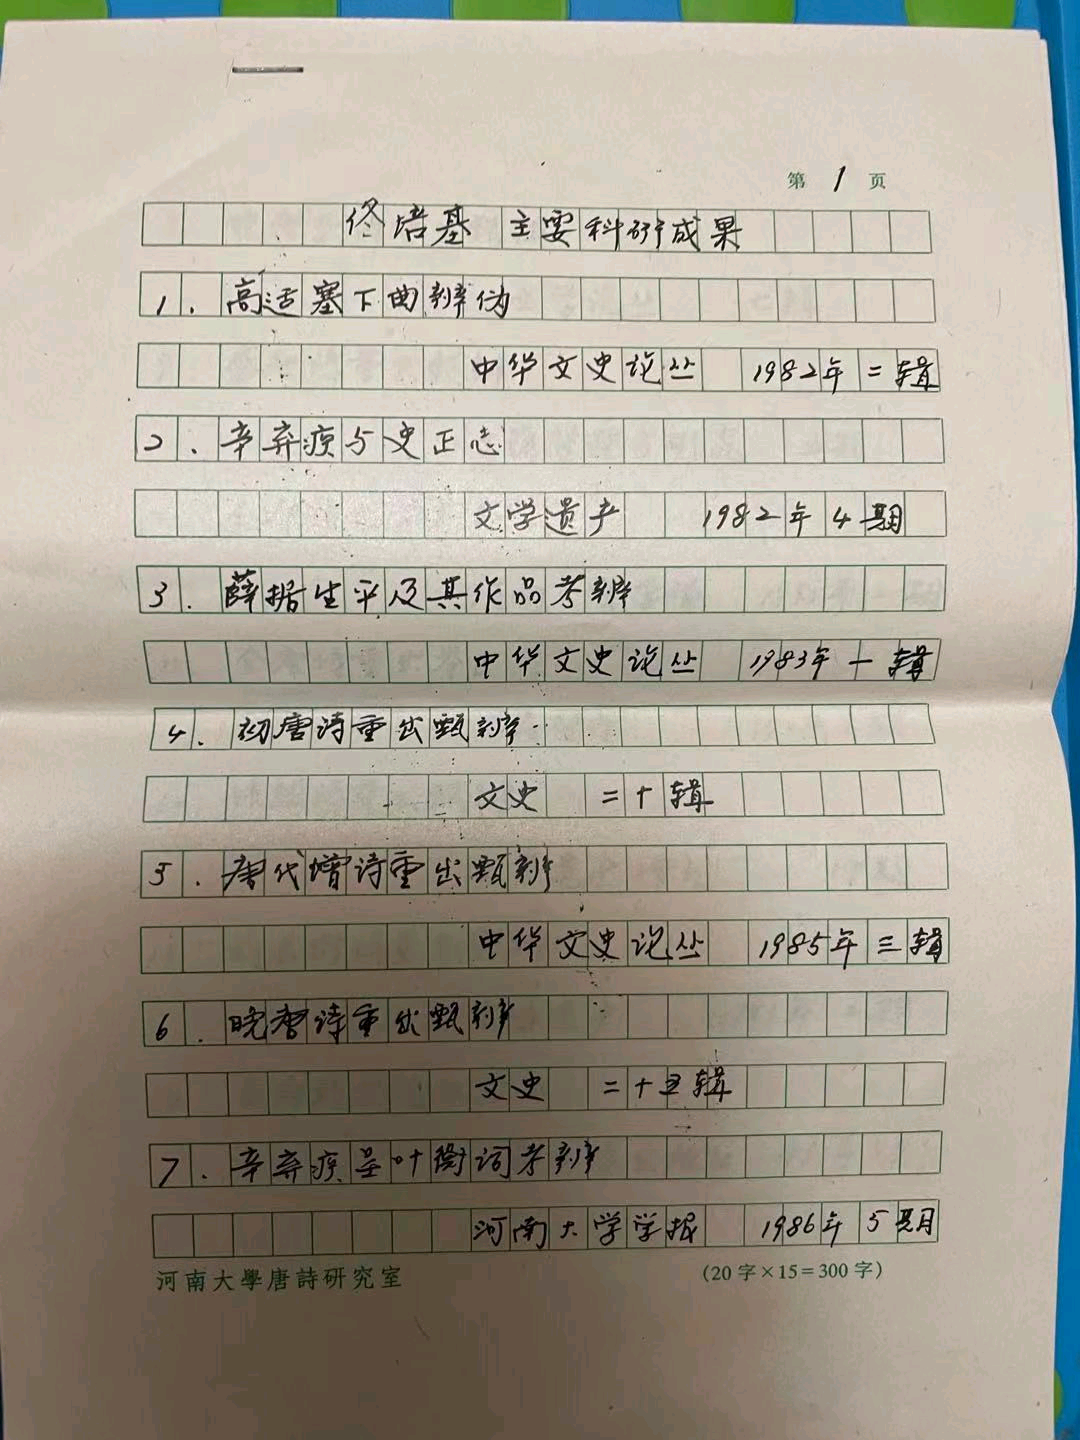 第 1 页
佟培基 主要科研成果
1. 高适塞下曲辨伪
中华文史论丛 1982年二辑
2. 辛弃疾与史正志
文学遗产 1982年4期
3. 薛据生平及其作品考辨
中华文史论丛 1983年一辑
4. 初唐诗重出甄辨
文史 二十辑
5. 唐代僧诗重出甄辨
中华文史论丛 1985年三辑
6. 晚唐诗重出甄辨
文史 二十五辑
7. 辛弃疾呈叶衡词考辨
河南大学学报 1986年5期
河南大學唐詩研究室 (20字×15=300字)